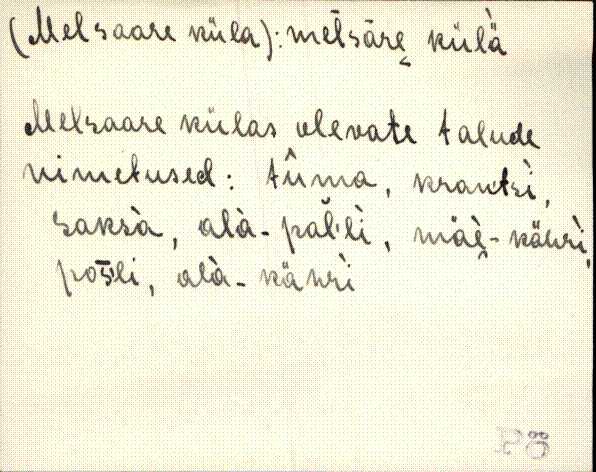 (Metsaare küla): mètsāre̬ küĺä̀
Metsaare külas olevate talude
nimetused: tûma, krantsì,
saksà, alà-pał'lì, mäè̬-kähŕì,
pos̄'li, alà-kähŕì
Põ